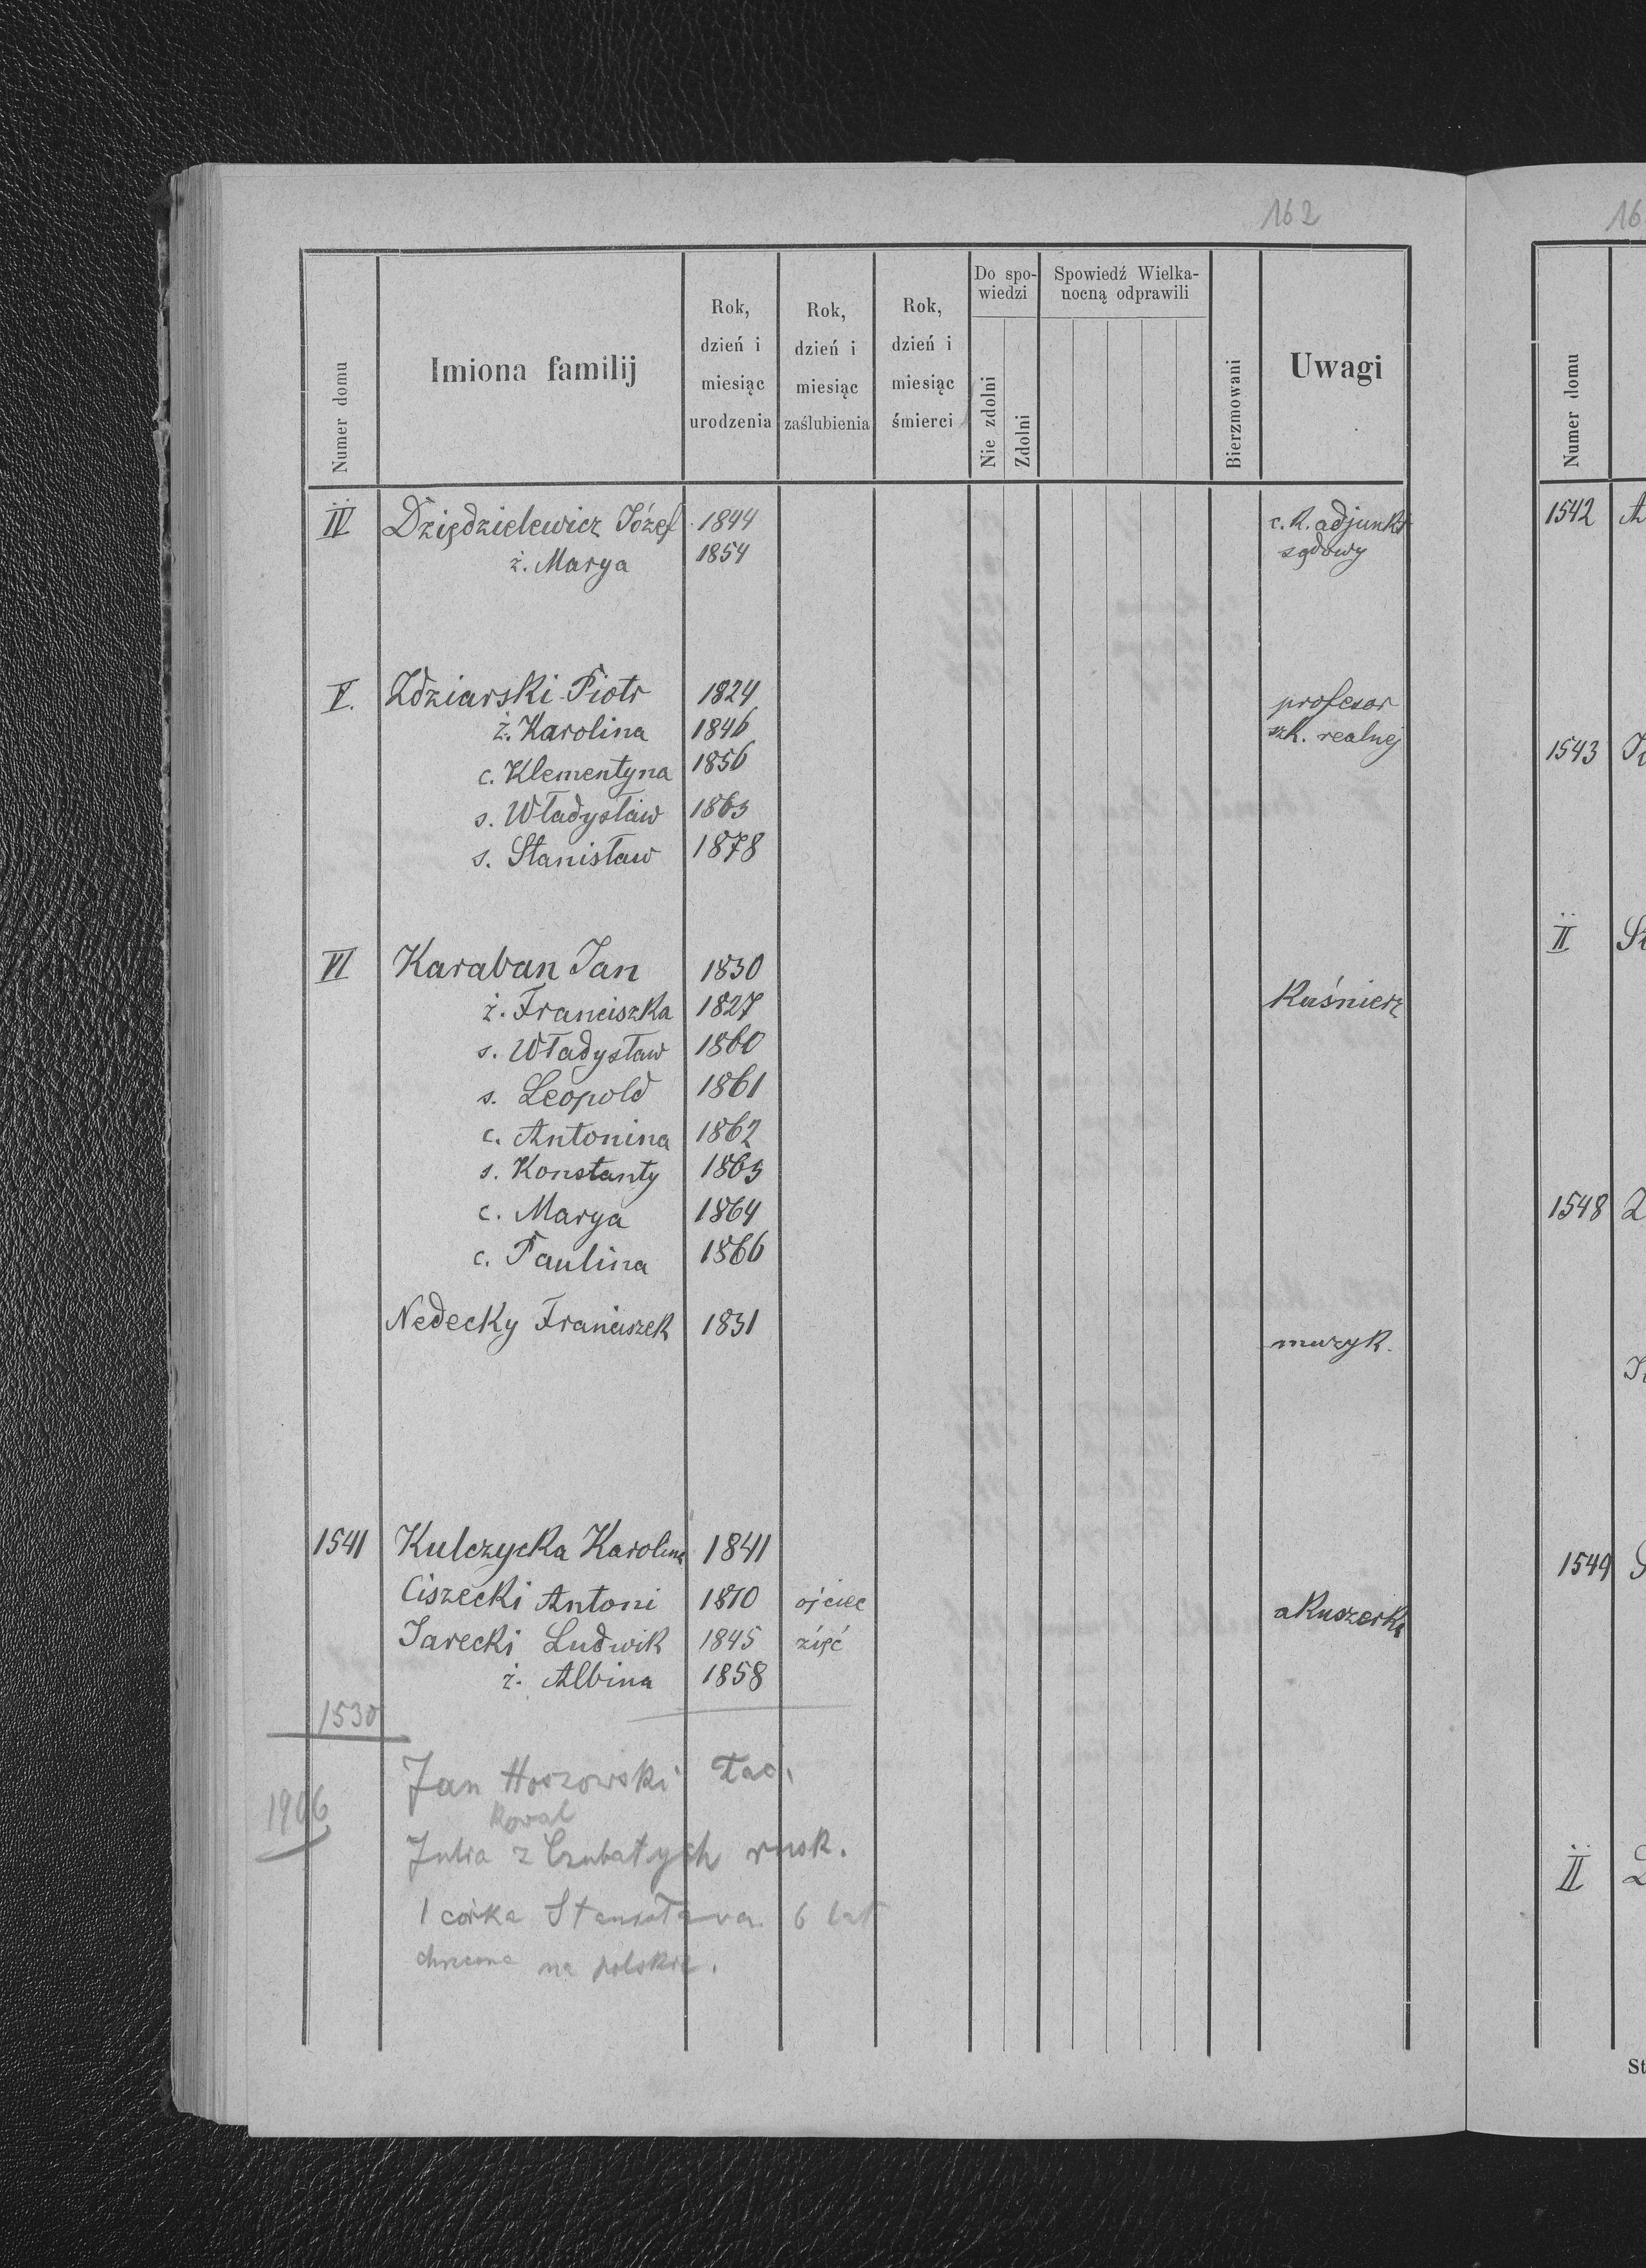 162
Numer domu
Imiona familij
Rok, dzień i miesiąc urodzenia
Rok, dzień i miesiąc zaślubienia
Rok, dzień i miesiąc śmierci
Do spo-wiedzi
Nie zdolni
Zdolni
Spowiedź Wielka-nocną odprawili
Bierzmowani
Uwagi
IV Dziędzielewicz Józef 1844 c. k. adjunkt
ż. Marya 1854 sądowy
V. Zdziarski Piotr 1824 profesor
ż. Karolina 1846 szk. realnej
c. Klementyna 1856
s. Władysław 1863
s. Stanisław 1878
VI Karaban Jan 1830
ż. Franciszka 1827 Kuśnierz
s. Władysław 1860
s. Leopold 1861
c. Antonina 1862
s. Konstanty 1863
c. Marya 1864
c. Paulina 1866
Nedecky Franciszek 1831 muzyk.
1541 Kulczycka Karolina 1841
Ciszecki Antoni 1810 ojciec akuszerka
Jarecki Ludwik 1845 zięć
ż. Albina 1858
1530
Jan Hoszowski łac.
Kowal
1906
Julia z Czubatych rusk.
1 córka Stanisława 6 lat
chrzcona na polskie.
16
Numer domu
1542
1543
II
1548
1549
II
St